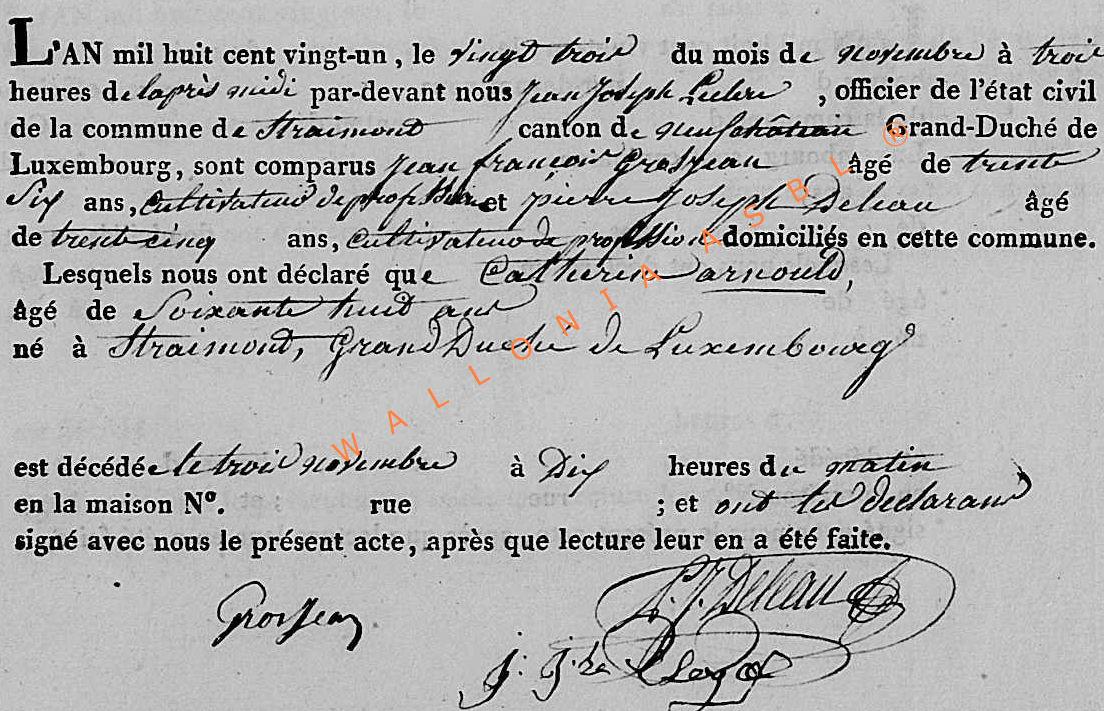 L'AN mil huit cent vingt-un, le vingt trois du mois de novembre à trois
heures de laprès midi par-devant nous Jean Joseph , officier de l'état civil
de la commune de Straimont canton de neufchâteau Grand-Duché de
Luxembourg, sont comparus jean françois Grosjean âgé de trente
Six ans, cultivateur de profession et pierre Joseph Deleau âgé
de trente cinq ans, cultivateur de profession domiciliés en cette commune.
Lesquels nous ont déclaré que Catherine arnould,
âgé de Soixante huit ans
né à Straimont, Grand Duché de Luxembourg
est décédée le trois novembre à Dix heures du matin
en la maison N°. rue ; et ont les declarans
signé avec nous le présent acte, après que lecture leur en a été faite.
Grosjean
P. J. Deleau
WALLONIA ASBL ®